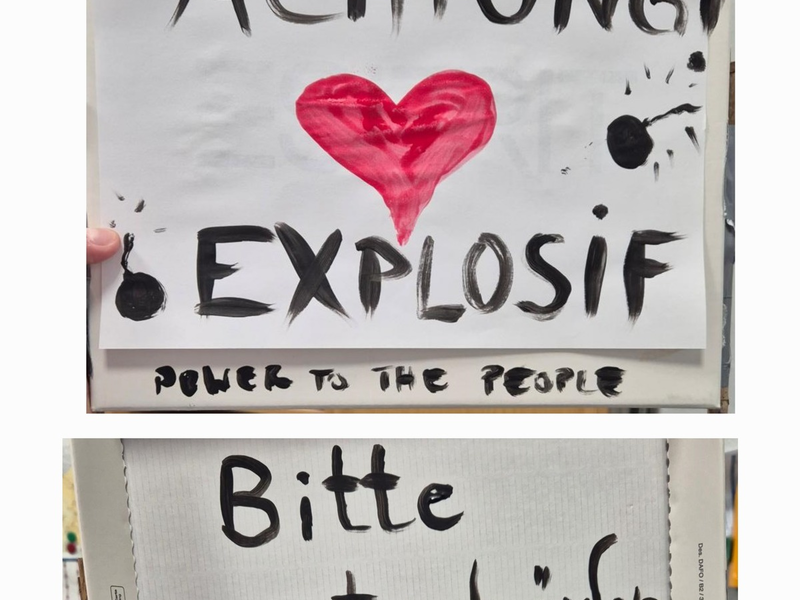 ACHTUNG!
EXPLOSiF
POWER TO THE PEOPLE
Bitte